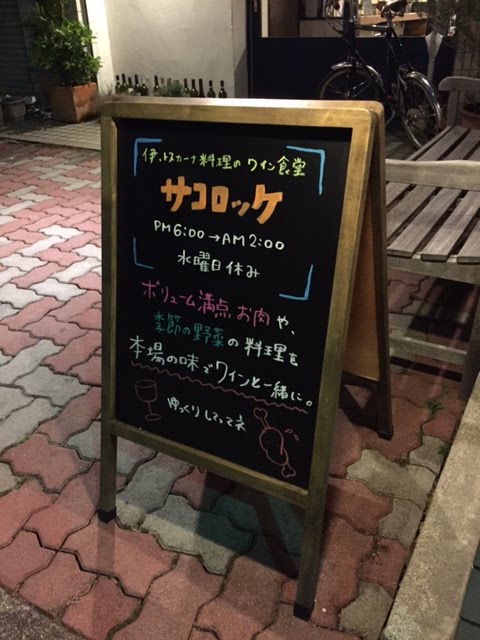 伊、トスカーナ料理のワイン食堂
サコロッケ
PM6:00→AM2:00
水曜日休み
ボリューム満点お肉や、
季節の野菜の料理を
本場の味でワインと一緒に。
ゆっくりしてってネ